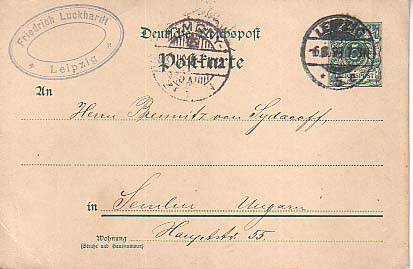 Friedrich Luckhardt
Leipzig
Deutsche Reichspost
Postkarte
LEIPZIG
An
Herrn von
in Semlin Ungarn
Hauptstr. 55.
Wohnung
(Straße und Hausnummer)